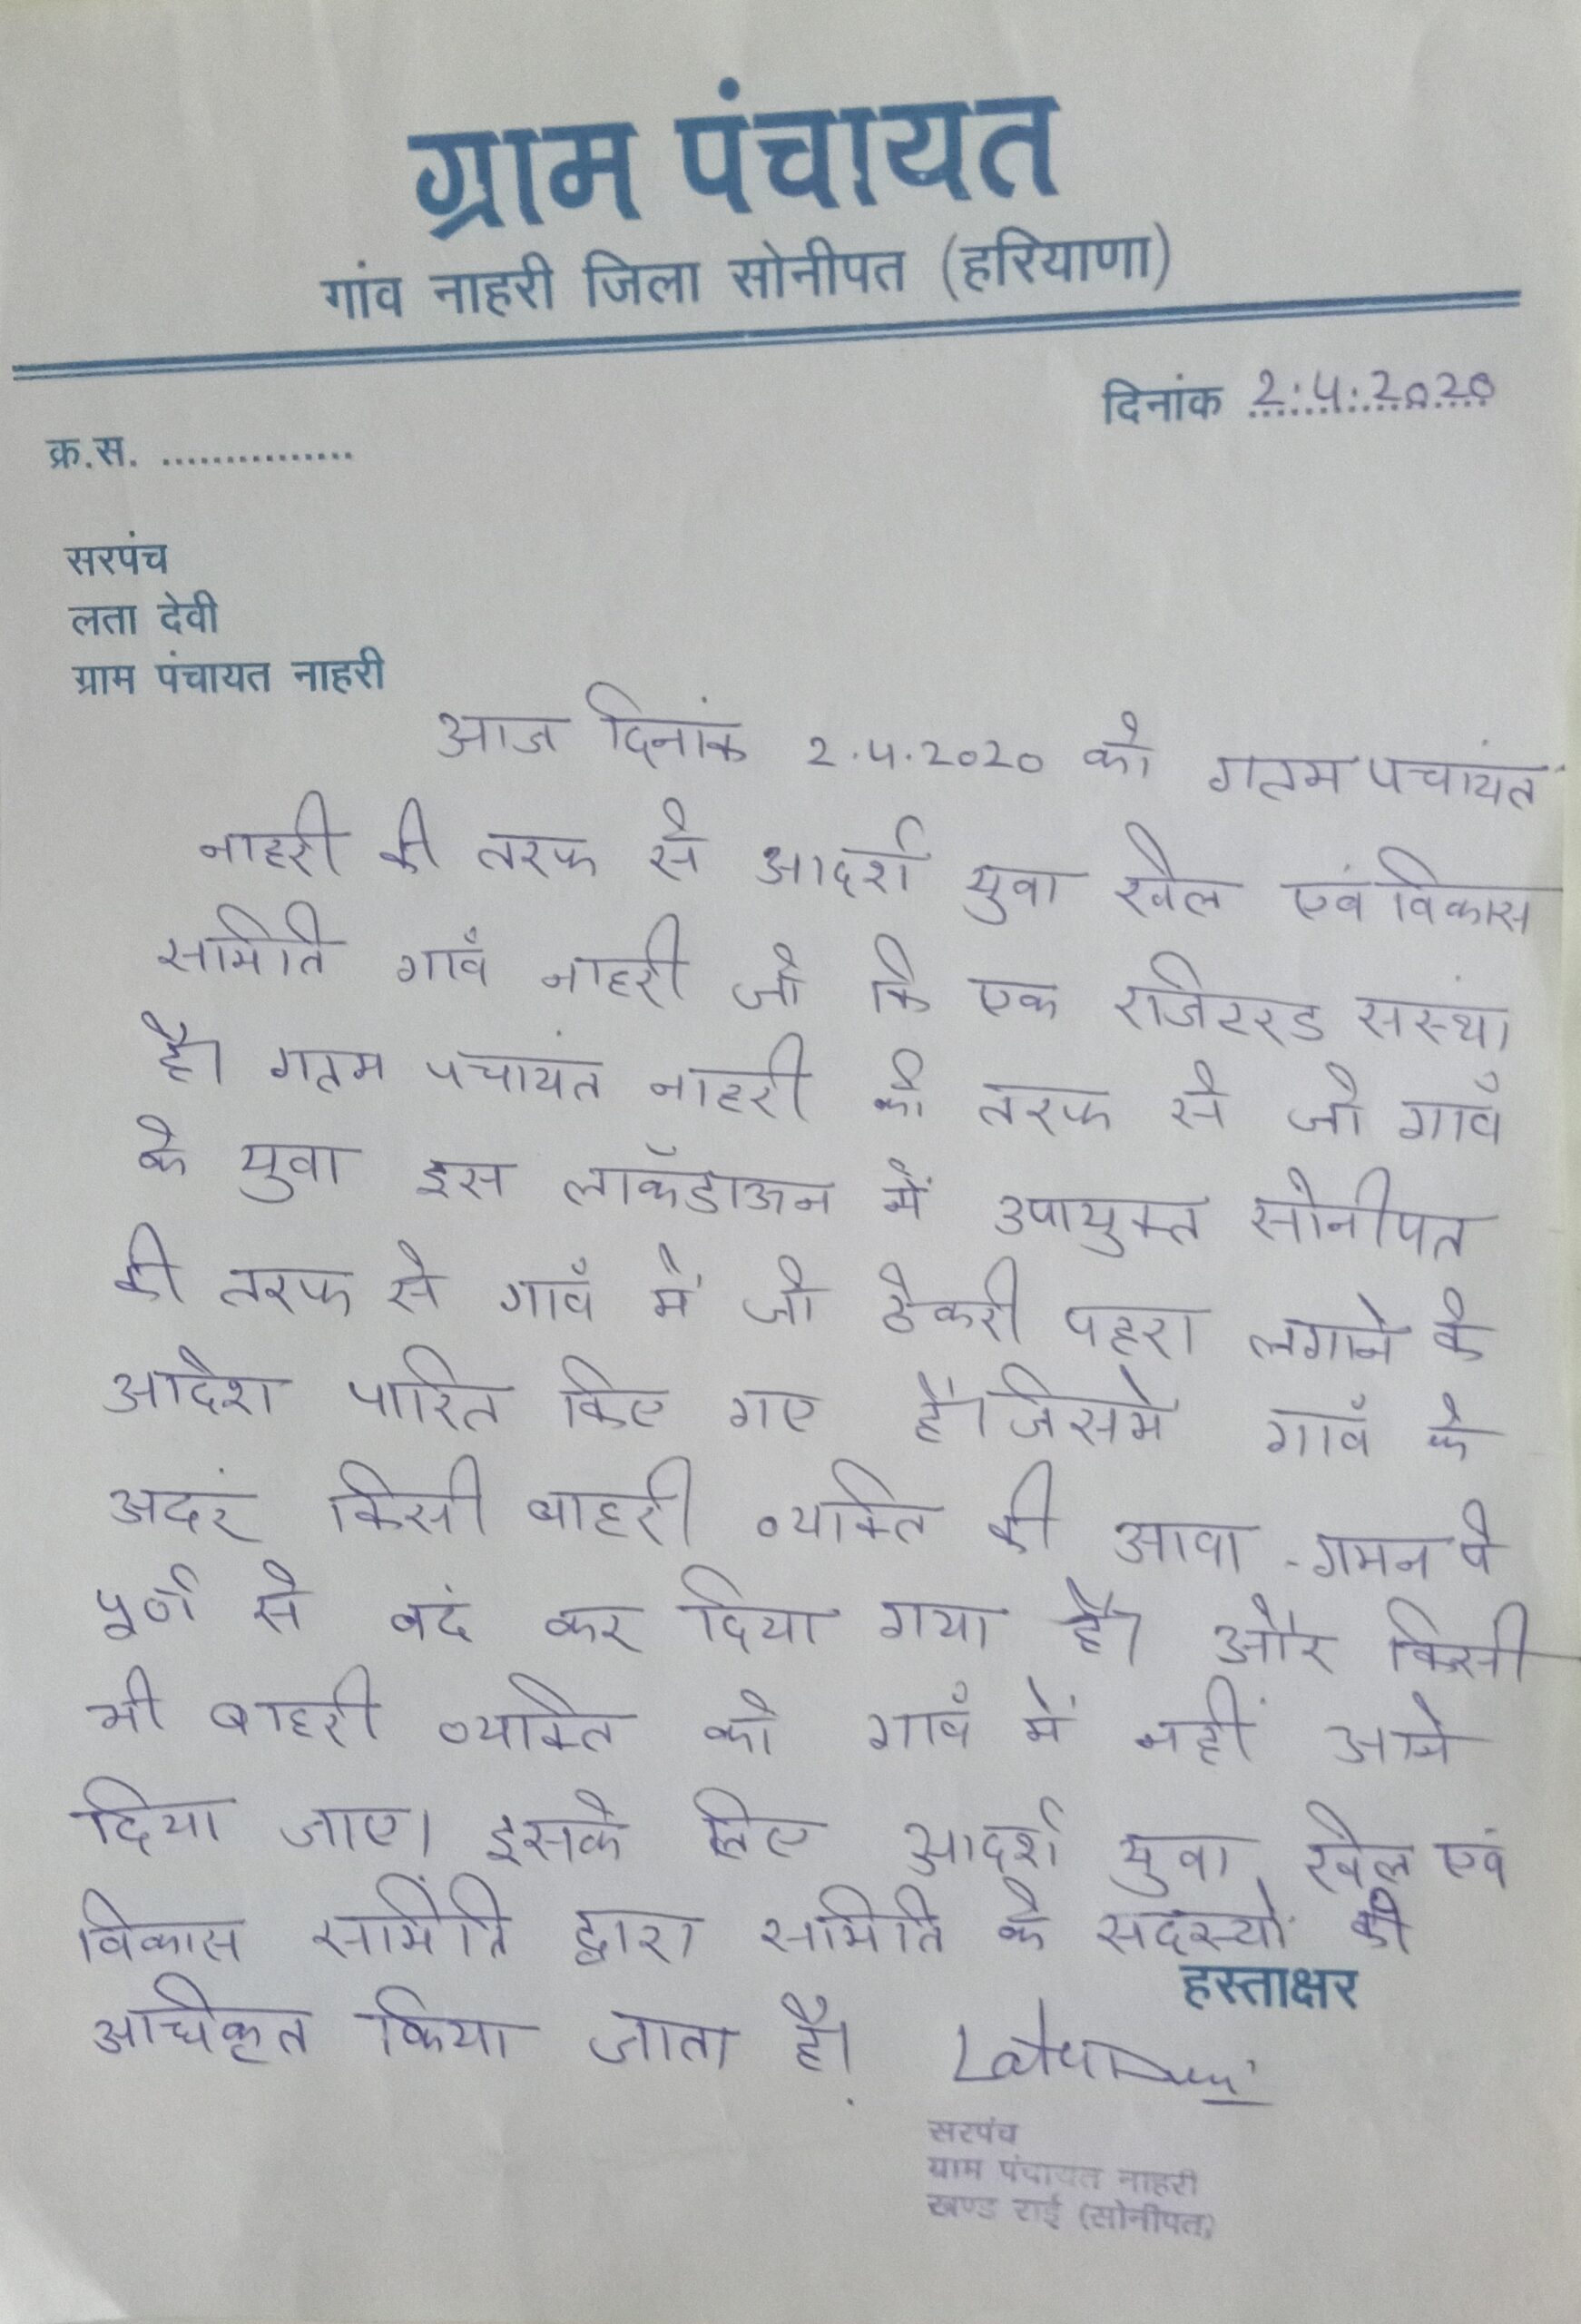 ग्राम पंचायत
गांव नाहरी जिला सोनीपत (हरियाणा)
दिनांक 2.4.2020
क्र.स. ...............
सरपंच
लता देवी
ग्राम पंचायत नाहरी
आज दिनांक 2.4.2020 को ग्राम पचांयत
नाहरी की तरफ से आदर्श युवा खेल एवं विकास
समिति गावँ नाहरी जो कि एक रजिटरड संस्था
है। ग्राम पचांयत नाहरी की तरफ से जो गावँ
के युवा इस लॉकडाऊन में उपायुक्त सोनीपत
की तरफ से गावँ में जो ठेकरी पहरा लगाने के
आदेश पारित किए गए है। जिसमे गावँ के
अदंर किसी बाहरी व्यक्ति की आवा-गमन पे
पूर्ण से बदं कर दिया गया है। और किसी
भी बाहरी व्यक्ति को गावँ में नहीं आने
दिया जाए। इसके लिए आदर्श युवा खेल एवं
विकास समिति द्वारा समिति के सदस्यों की
हस्ताक्षर
अधिकृत किया जाता है।
Lata Devi
सरपंच
ग्राम पंचायत नाहरी
खण्ड राई (सोनीपत)